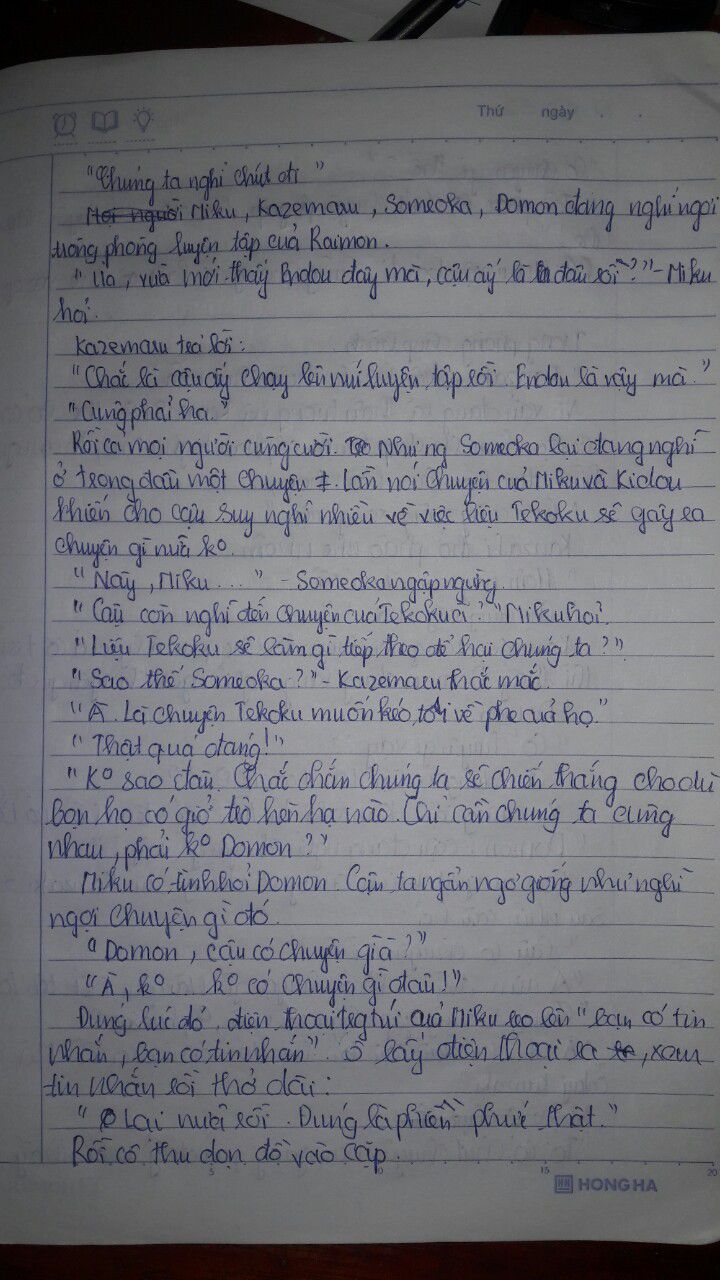 Thứ ngày . .
"Chúng ta nghỉ chút đi"
Mọi người Miku, Kazemaru, Someoka, Domon đang nghỉ ngơi
trong phòng luyện tập của Raimon.
"Ua, vừa mới thấy Endou đây mà, cậu ấy là đâu rồi?" - Miku
hỏi.
Kazemaru trả lời:
"Chắc là cậu ấy chạy lên núi luyện tập rồi. Endou là vậy mà."
"Cũng phải ha."
Rồi cả mọi người cùng cười. Nhưng Someoka lại đang nghĩ
ở trong đầu một chuyện ≠. Lần nói chuyện của Miku và Kidou
khiến cho cậu suy nghĩ nhiều về việc liệu Tekoku sẽ gây ra
chuyện gì nữa ko.
"Này, Miku ..." - Someoka ngập ngừng.
"Cậu còn nghĩ đến chuyện của Tekoku à?" Miku hỏi.
"Liệu Tekoku sẽ làm gì tiếp theo để hại chúng ta?"
"Sao thế Someoka?" - Kazemaru thắc mắc.
"À. Là chuyện Tekoku muốn kéo tớ về phe của họ."
"Thật quá đáng!"
"Ko sao đâu. Chắc chắn chúng ta sẽ chiến thắng cho dù
bọn họ có giở trò hèn hạ nào. Chỉ cần chúng ta cùng
nhau, phải ko Domon?"
Miku cố tình hỏi Domon. Cậu ta ngẩn ngơ giống như nghĩ
ngợi chuyện gì đó.
"Domon, cậu có chuyện gì à?"
"À, ko... ko có chuyện gì đâu!"
Đúng lúc đó, điện thoại trong túi của Miku reo lên "bạn có tin
nhắn, bạn có tin nhắn". Cô lấy điện thoại ra, xem
tin nhắn rồi thở dài:
"Lại nữa rồi. Đúng là phiền phức thật."
Rồi cô thu dọn đồ vào cặp.
5 10 15 20
HONG HA